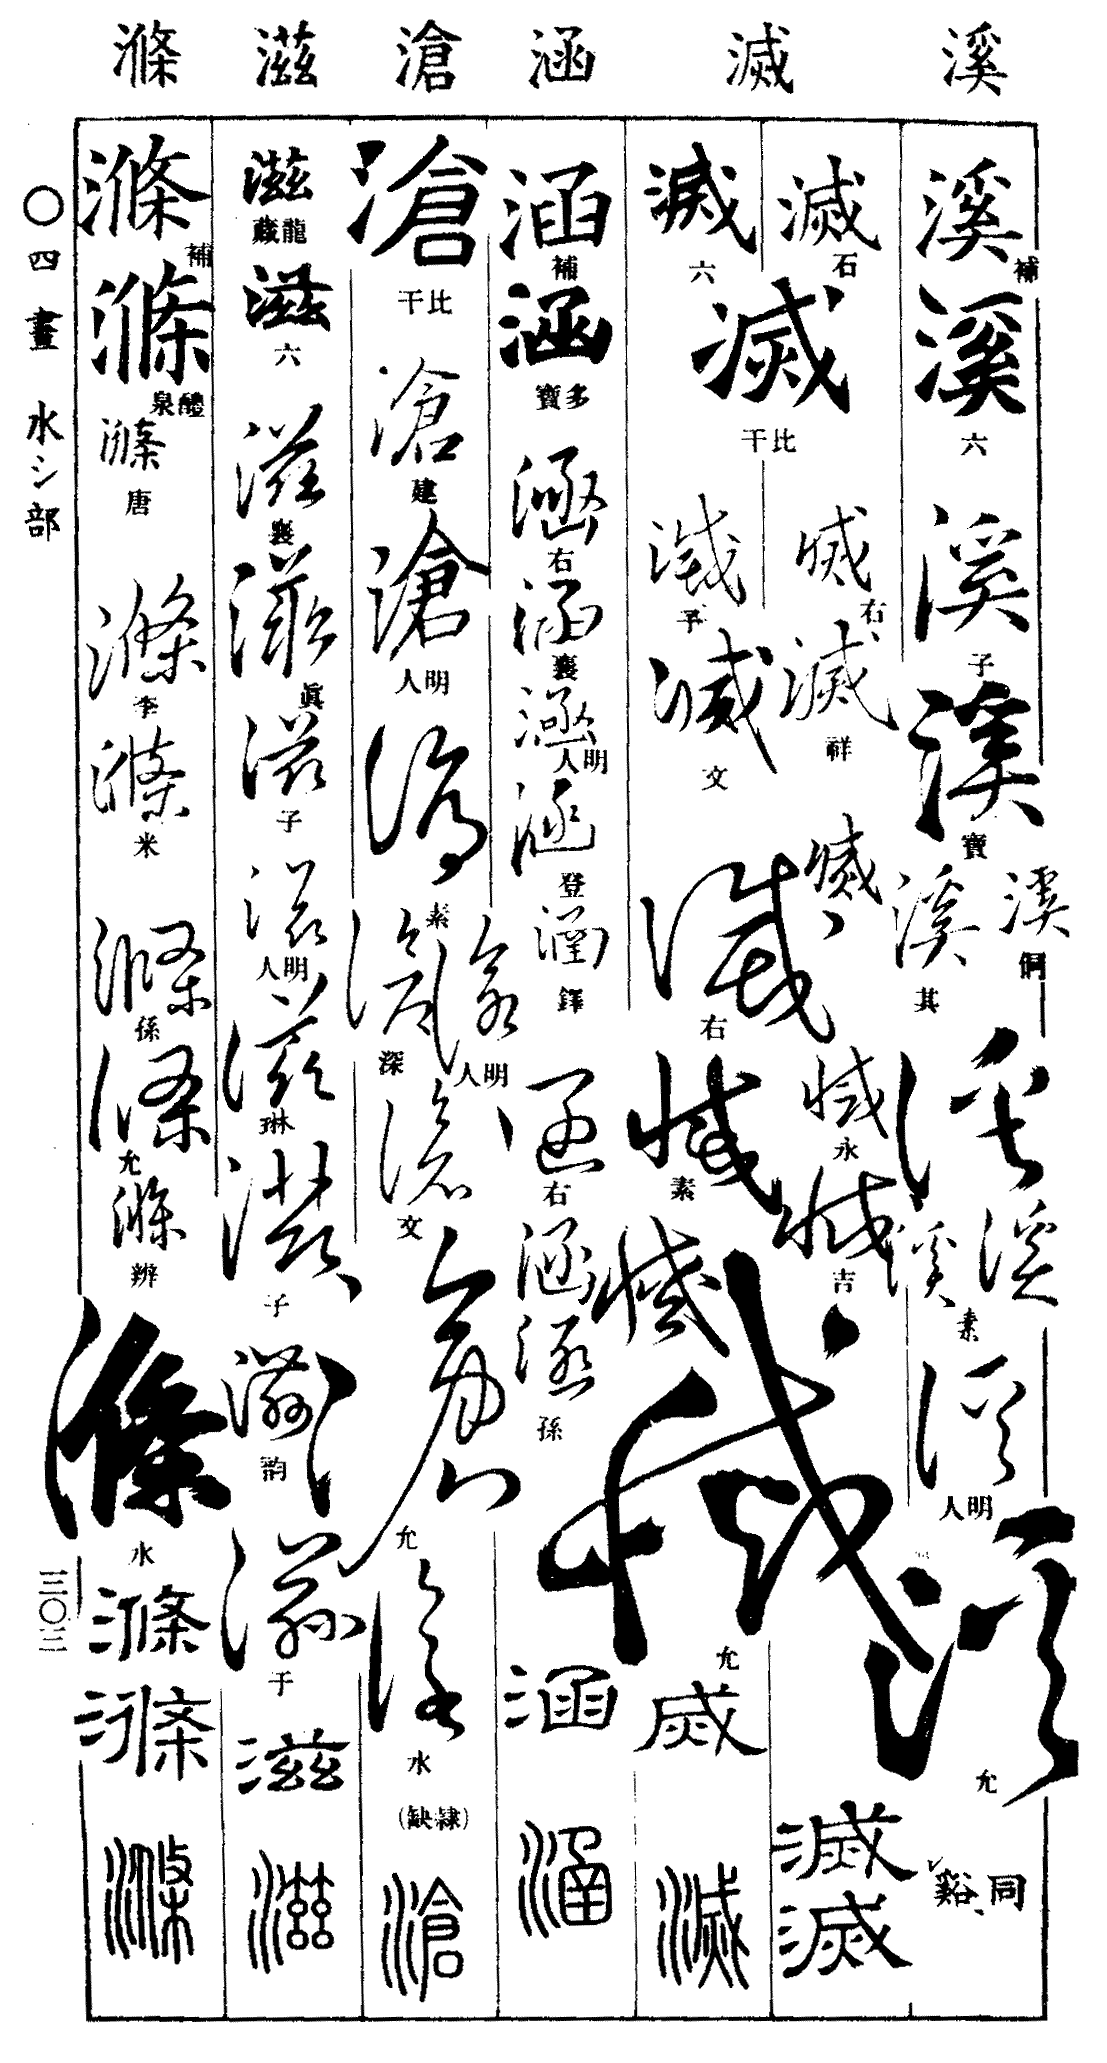 溪
滅
涵
滄
滋
滌
溪
補
溪
六
溪
子
溪
寶
溪
侗
溪
其
溪
溪
溪
素
溪
明人
溪
允
同谿
滅
石
滅
六
滅
比干
滅
右
滅
祥
滅
子
滅
文
滅
滅
右
滅
永
滅
素
滅
吉
滅
滅
允
滅
滅
滅
滅
涵
補
涵
多寶
涵
右
涵
襄
涵
明人
涵
登
涵
鐸
涵
右
涵
涵
孫
涵
涵
滄
比干
滄
建
滄
明人
滄
素
滄
深
滄
明人
滄
文
滄
允
滄
水
(隸缺)
滄
滋
龍藏
滋
六
滋
襄
滋
眞
滋
子
滋
明人
滋
琳
滋
子
滋
韵
滋
于
滋
滋
滌
補
滌
醴泉
滌
唐
滌
李
滌
米
滌
孫
滌
允
滌
辨
滌
水
滌
滌
滌
〇四畫 水氵部
三〇三